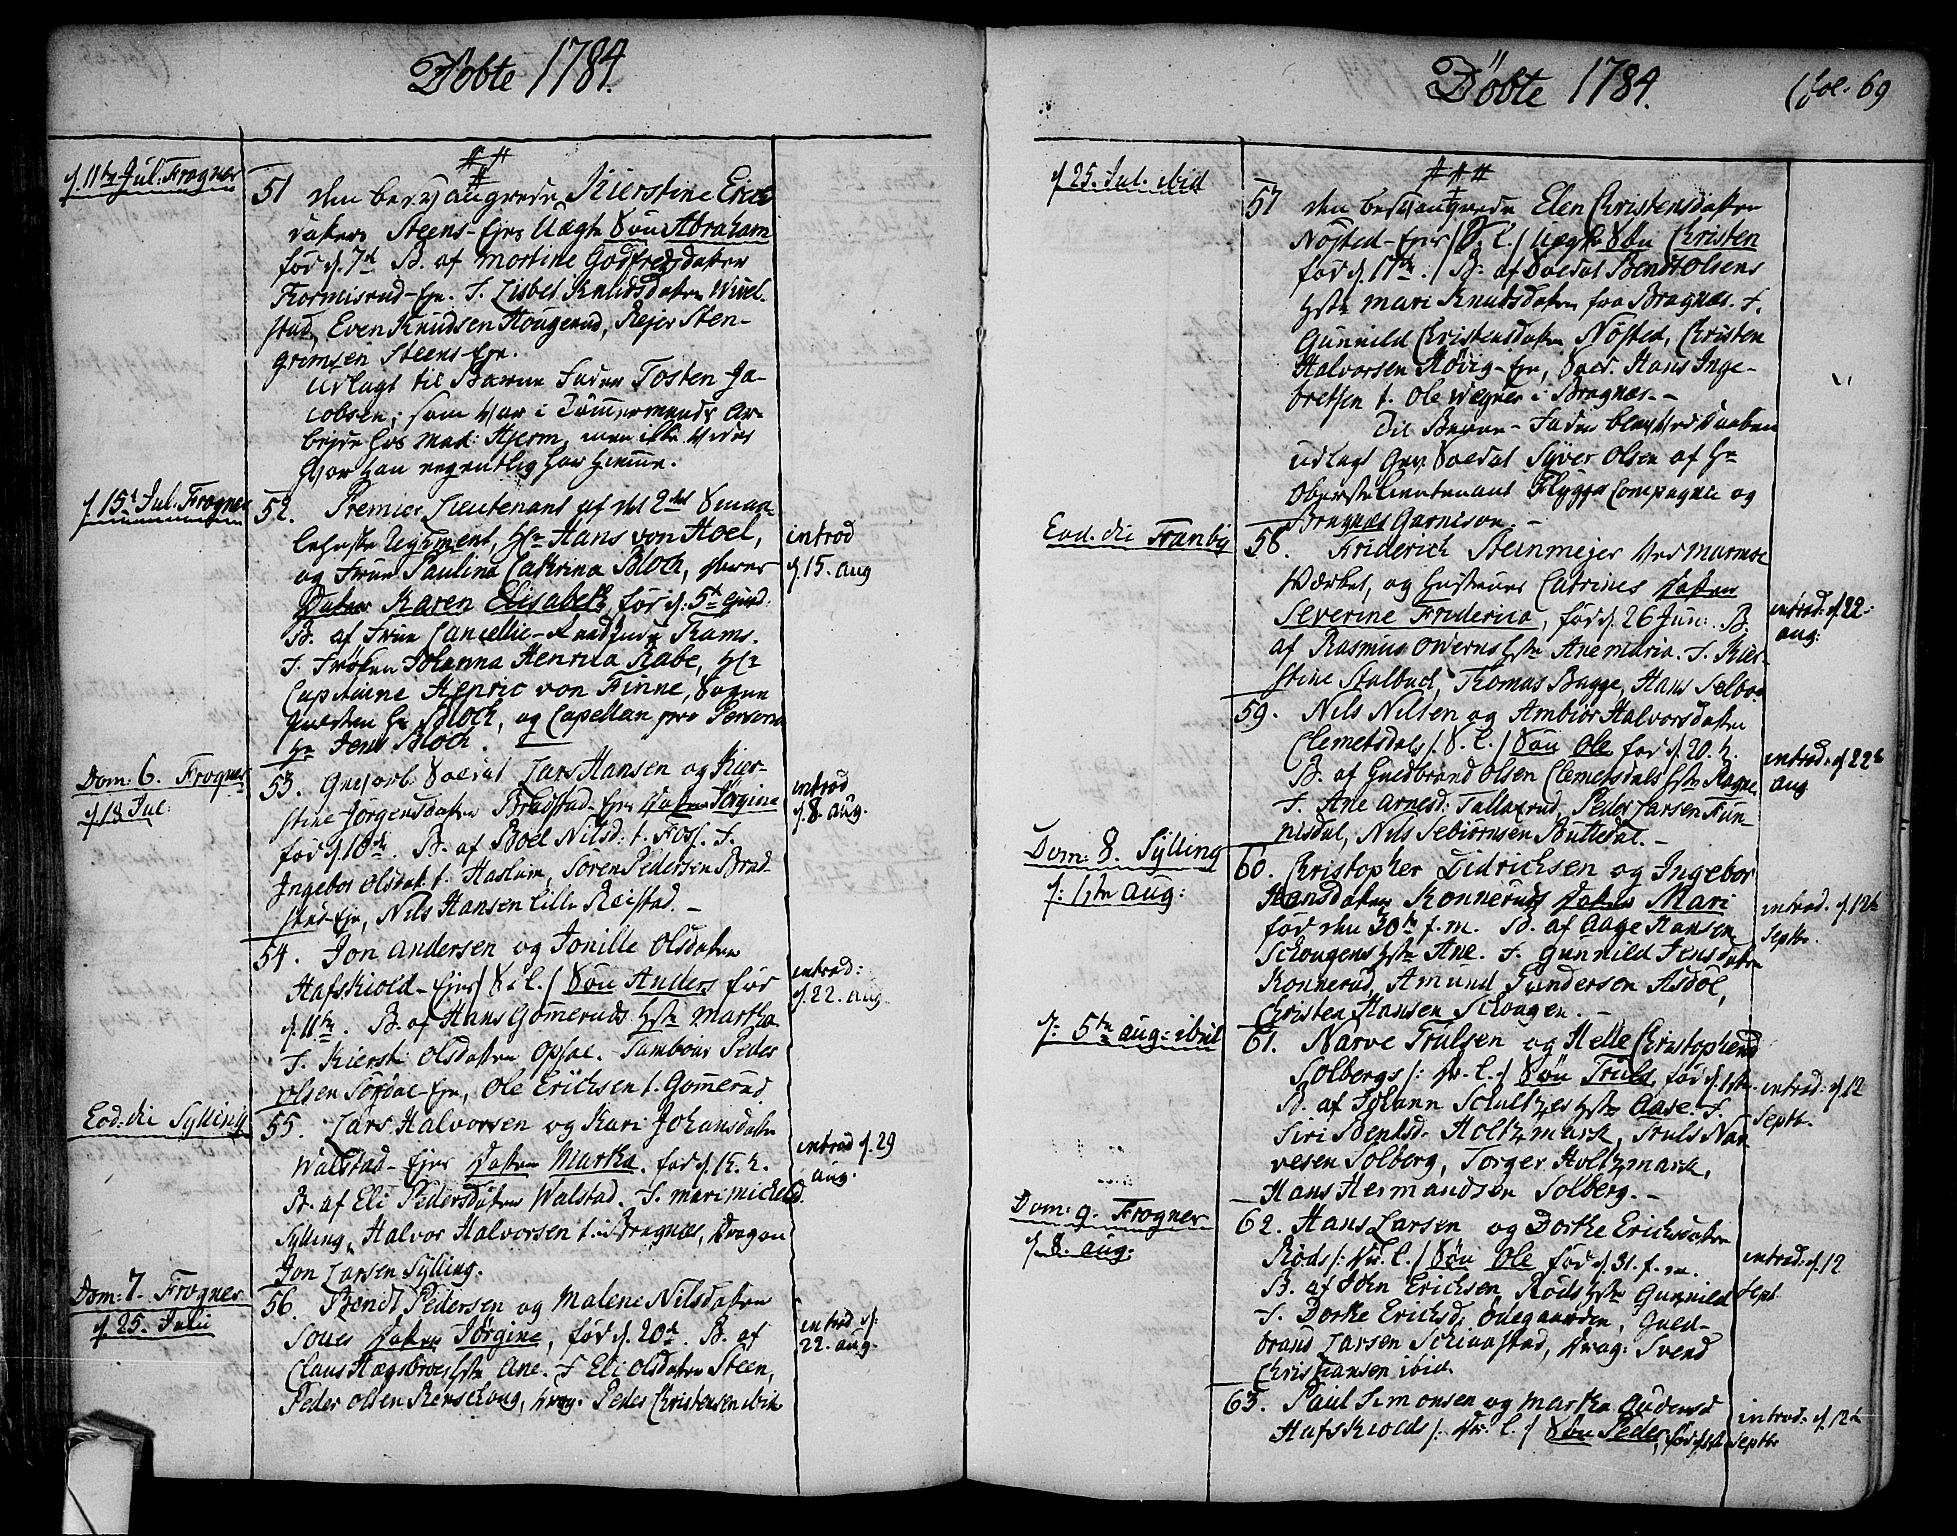 Döbte 1784.
d. 11te Jul: Frogner
51 den besvangrede Kierstine Erics
datters Steens-Ejes Uægte Søn Abraham
fød d. 7de B. af Mortine Godfredsdatter
Kormisrud-Eje. F. Lisbet Knudsdatter Wivel-
stad, Even Knudsen Hougerud, Rejer Sten-
grimsen Steens-Eje.
Udlagt til Barne Fader Tosten Ja-
cobsen, som var i Tømmermands Ar-
bejde hos Mad: Hjerm, men ikke veed
hvor han egentlig har hjemme.
d. 15de Jul: Frogner
52. Premier Lieutenant af det 2det Smaa-
lehnske Regiment, Hr Hans von Hoel,
og Frue Paulina Cathrina Bloch, deres
Datter Karen Elisabeth, fød d: 5te ejusd:
B. af Frue Cancellie-Raadinde Rams.
F. Frøken Johanna Henrica Rabe, Hr
Capitaine Henric von Finne, Sogne
Præsten Hr Bloch, og Capellan pro Persona
Hr Jens Bloch.
introd
d. 15. Aug
Dom: 6. Frogner
d. 18 Jul:
53. Gevorb. Soldat Lars Hansen og Kier-
stine Jörgensdatter Bradstad-Ejes Datter Jörgine
fød d. 10de. B. af Boel Nilsd: t. Foss. F.
Ingebor Olsdat. t. Haslum, Søren Pedersen Brad-
stad-Eje, Nils Hansen Lille Reistad. –
introd
d. 8. Aug.
54. Jon Andersen og Jonille Olsdatter
Hafskiold-Ejes / S. l. / Søn Anders fød
d. 11te. B. af Hans Gomeruds Hstr Martha
F. Kierst: Olsdatter Opsal. Tambour Peder
Olsen Sogdal-Eje, Ole Erichsen t. Gomerud.
introd:
d. 22. Aug.
Eod: die Sylling
55. Lars Halvorsen og Kari Johansdatter
Walstad-Ejes Datter Martha. fød d. 15. h.
B. af Eli Pedersdatter Walstad. F. Mari Michelsd.
Sylling, Halvor Halvorsen t. Bragnæs, Dragon
Jon Larsen Sylling.
introd d. 29
aug.
Dom: 7. Frogner
d. 25. Julii
56. Bendt Pedersen og Malene Nilsdatter
Soues Datter Jörgine, fød d. 20de. B. af
Claus Hægsbroes Hstr Ane. F. Eli Olsdatter Steen,
Peder Olsen Renskoug, Drag. Peder Christensen ibid.
introd d.
22. Aug.
Döbte 1784.
(fol. 69
d. 25. Jul. ibid
57 den besvangrede Elen Christensdatter
Nøsted-Ejes / S. l. / Uægte Søn Christen
fød d. 17de. / B. af Soldat Bendt Olsens
Hstr Mari Knudsdatter fra Bragnæs. F.
Gunnild Christensdatter Nøsted, Christen
Halvorsen Høvig-Eje, Sold. Hans Inge-
bretsen t. Ole Wegner i Bragnæs. –
Til Barne-Fader blev ved Daaben
udlagt Gev. Soldat Syver Olsen af Hr
Oberstelieutenant Flygge Compagnie og
Bragnæs Garnison. –
Eod. die Tranby
58. Friderich Steinmejer ved Marmor
Værket, og Hustrues Catrines Datter
Severine Friderica, fød d. 26 Jun: B.
af Rasmus Overns Hstr Ane Maria. F. Kier-
stine Stalbud, Thomas Bagge, Hans Selboe
introd: d. 22
aug:
59. Nils Nilsen og Ambiør Halvorsdatter
Clemetsdals / S. l. / Søn Ole fød d. 20. h.
B. af Guldbrand Olsen Clemetsdals Hstr Ragne
F. Ane Arnesd: Tallaxrud, Peder Larsen Fun-
nisdal, Nils Sebiørnsen Buttedal. –
introd: d. 22de
Aug
Dom: 8. Sylling
d: 1ste Aug:
60. Christopher Didrichsen og Ingebor
Hansdatter Konneruds Datter Mari
fød den 30te f. m. B. af Aage Hansen
Schougens Hstr Ane. F. Gunnild Jensdatter
Konnerud, Amund Gundersen Asdøl,
Christen Hansen Schougen. –
introd: d. 12te
Septbr.
d: 5te Aug: ibid
61. Narve Trulsen og Helle Christophersd
Solbergs /: Dr. l. / Søn Truls, fød d. 1ste.
B. af Johann Schultzes Hstr Aase. F.
Siri Bentsd. Holtzmark, Truls Nar-
vesen Solberg, Torger Holtzmark,
Hans Hermandsen Solberg. –
introd: d. 12
Septbr.
Dom: 9. Frogner
d. 8. Aug:
62. Hans Larsen og Dorthe Erichsdatter
Røds /: Dr. l. / Søn Ole fød d. 31. f. m.
B. af John Erichsen Røds Hstr Gunnild
F. Dorthe Ericsd: Ødegaarden, Guld-
brand Larsen Schiaastad, Drag: Svend
Christiansen ibid.
introd: d. 12
Sept
63. Paul Simonsen og Martha Andersd
Hafskiolds /: Dr. l. / Søn Peder, fød
introd: d. 12te
Septbr